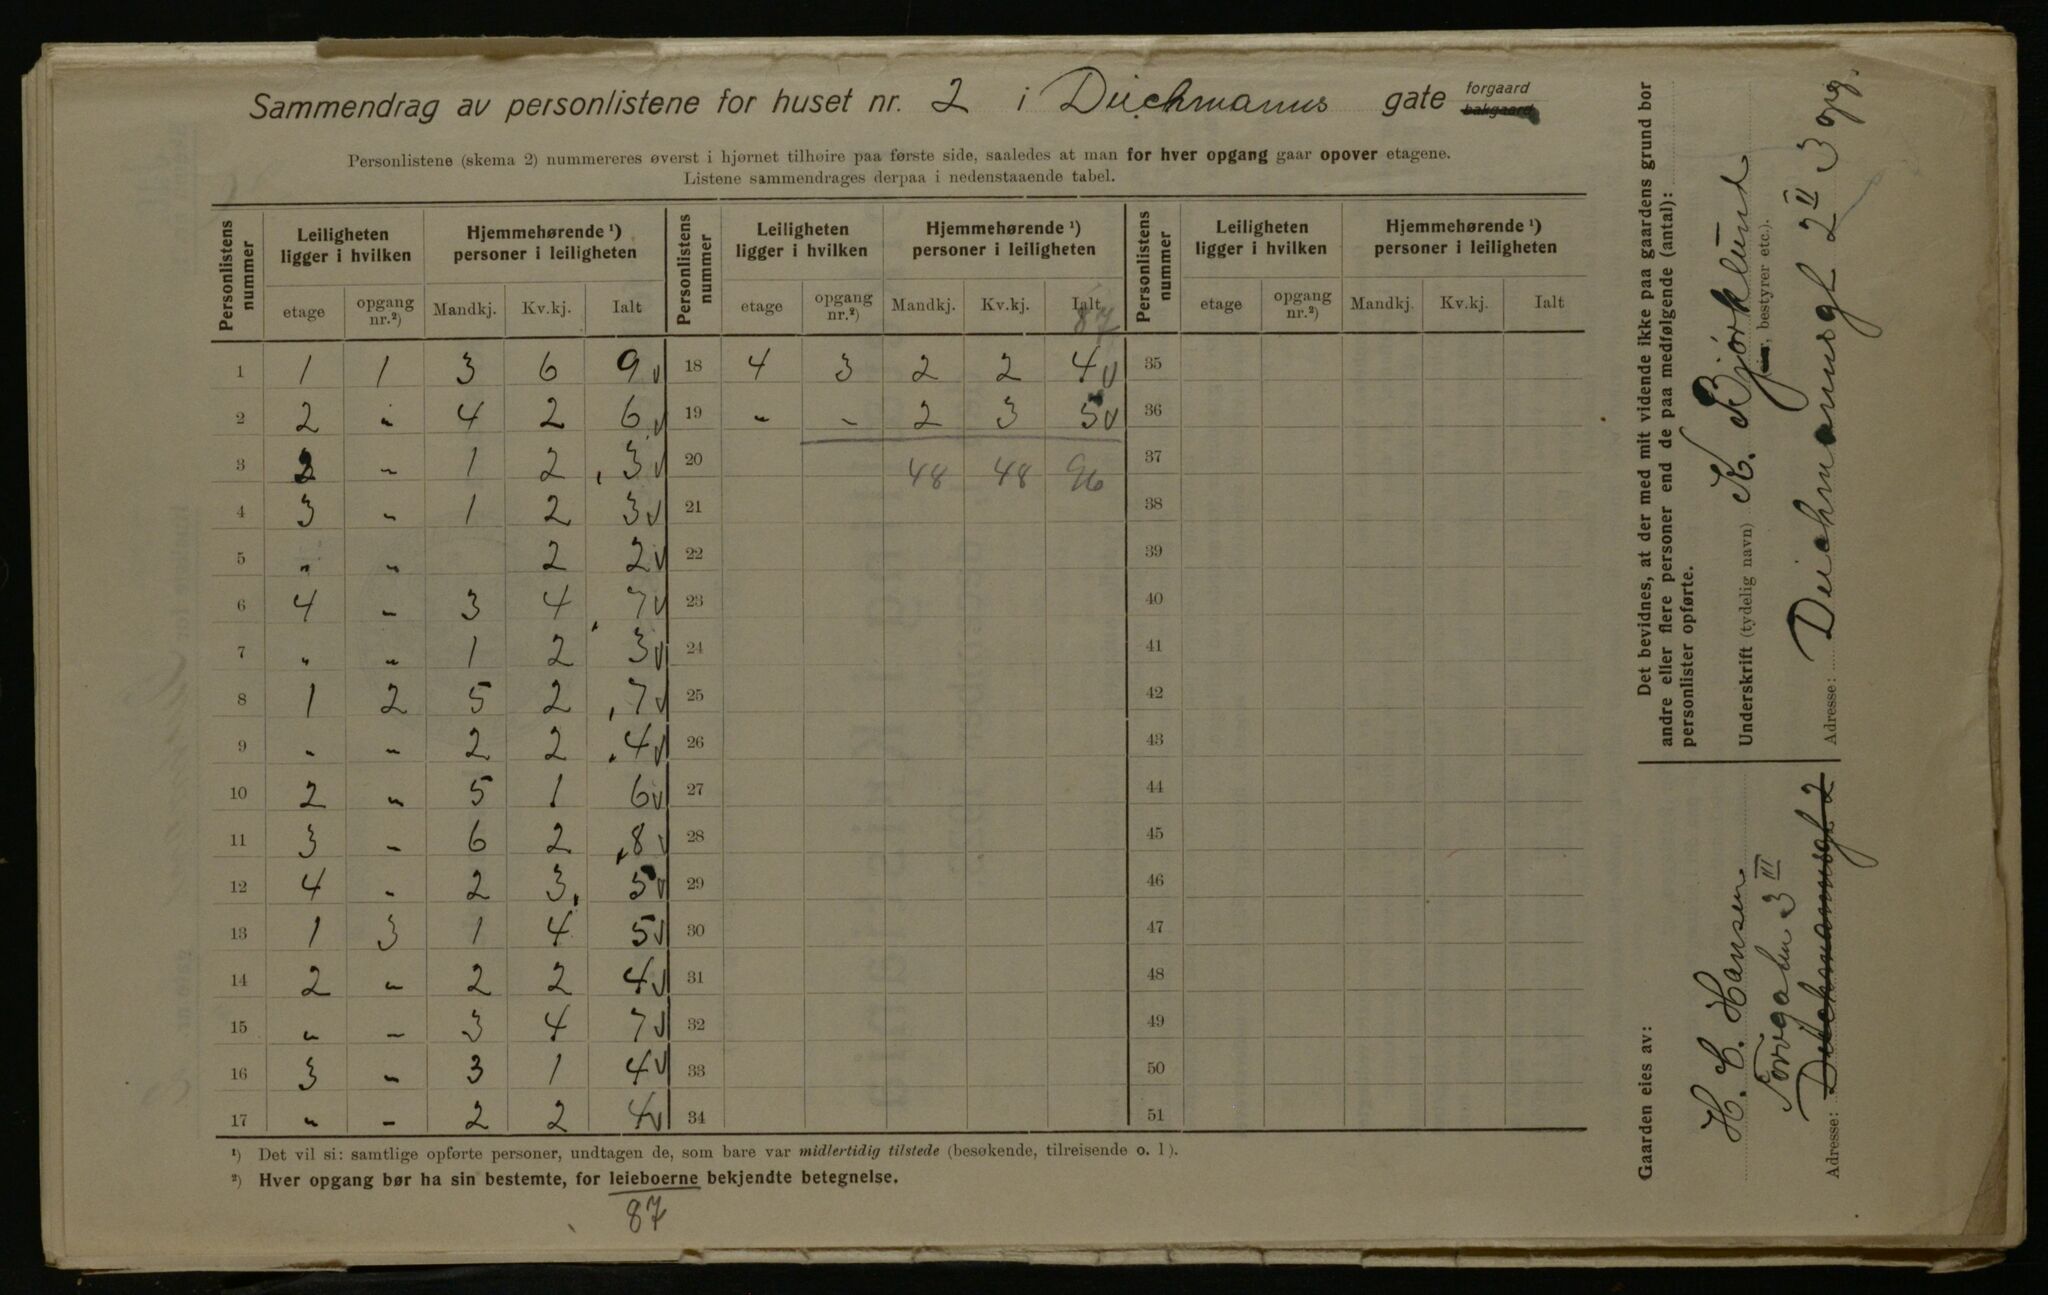 Sammendrag av personlistene for huset nr. 2 i Deichmanns gate forgaard bakgaard
Personlistene (skema 2) nummereres øverst i hjørnet tilhøire paa første side, saaledes at man for hver opgang gaar opover etagene.
Listene sammendrages derpaa i nedenstaaende tabel.
Personlistens nummer | Leiligheten ligger i hvilken | Hjemmehørende ¹) personer i leiligheten | Personlistens nummer | Leiligheten ligger i hvilken | Hjemmehørende ¹) personer i leiligheten | Personlistens nummer | Leiligheten ligger i hvilken | Hjemmehørende ¹) personer i leiligheten
etage | opgang nr.²) | Mandkj. | Kv.kj. | Ialt | etage | opgang nr.²) | Mandkj. | Kv.kj. | Ialt | etage | opgang nr.²) | Mandkj. | Kv.kj. | Ialt
87
1 | 1 | 1 | 3 | 6 | 9 v | 18 | 4 | 3 | 2 | 2 | 4 v | 35
2 | 2 | " | 4 | 2 | 6 v | 19 | " | " | 2 | 3 | 5 v | 36
3 | 2 | " | 1 | 2 | 3 v | 20 | | | 48 | 48 | 96 | 37
4 | 3 | " | 1 | 2 | 3 v | 21 | 38
5 | " | " | | 2 | 2 v | 22 | 39
6 | 4 | " | 3 | 4 | 7 v | 23 | 40
7 | " | " | 1 | 2 | 3 v | 24 | 41
8 | 1 | 2 | 5 | 2 | 7 v | 25 | 42
9 | " | " | 2 | 2 | 4 v | 26 | 43
10 | 2 | " | 5 | 1 | 6 v | 27 | 44
11 | 3 | " | 6 | 2 | 8 v | 28 | 45
12 | 4 | " | 2 | 3 | 5 v | 29 | 46
13 | 1 | 3 | 1 | 4 | 5 v | 30 | 47
14 | 2 | " | 2 | 2 | 4 v | 31 | 48
15 | " | " | 3 | 4 | 7 v | 32 | 49
16 | 3 | " | 3 | 1 | 4 v | 33 | 50
17 | " | " | 2 | 2 | 4 v | 34 | 51
¹) Det vil si: samtlige opførte personer, undtagen de, som bare var midlertidig tilstede (besøkende, tilreisende o. l).
²) Hver opgang bør ha sin bestemte, for leieboerne bekjendte betegnelse.
87
Det bevidnes, at der med mit vidende ikke paa gaardens grund bor
andre eller flere personer end de paa medfølgende (antal):
personlister opførte.
Underskrift (tydelig navn) K. Bjørklund
, bestyrer etc.).
Adresse: Deichmannsgt 2 II 3 opg.
Gaarden eies av:
H. C. Hansen
3 III
Adresse: Deichmannsgt 2